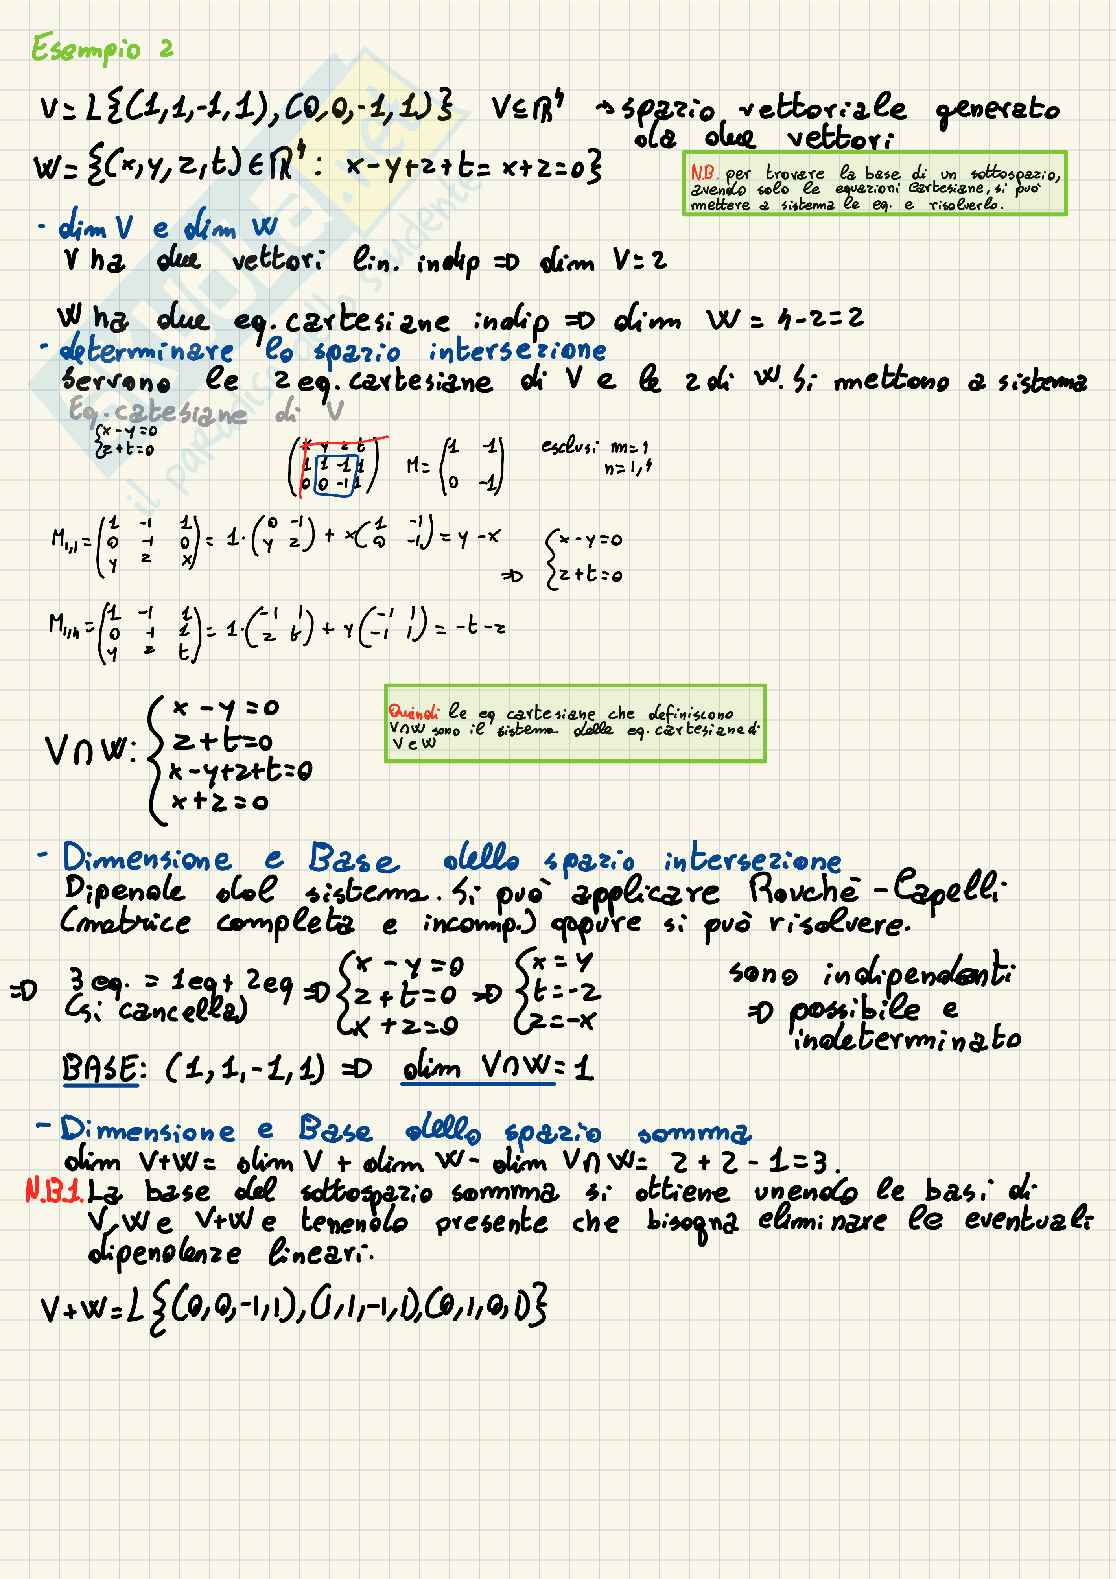 Esempio 2
V=L{(1,1,-1,1),(0,0,-1,1)} V⊆ℝ⁴ → spazio vettoriale generato
da due vettori
W={(x,y,z,t)∈ℝ⁴: x-y+z+t=x+z=0}
N.B. per trovare la base di un sottospazio,
avendo solo le equazioni cartesiane, si può
mettere a sistema le eq. e risolverlo.
- dim V e dim W
V ha due vettori lin. indip ⇒ dim V=2
W ha due eq. cartesiane indip ⇒ dim W = 4-2=2
- determinare lo spazio intersezione
Servono le 2 eq. cartesiane di V e le 2 di W. Si mettono a sistema
Eq. catesiane di V
{x-y=0
z+t=0
(x y z t
1 1 -1 1
0 0 -1 1)
M=(1 -1
0 -1)
esclusi m=1
n=1,4
M₁,₁=(1 -1 1
0 -1 0
y z x)=1·(0 -1
y z)+x(1 -1
0 -1)=y-x
⇒ {x-y=0
z+t=0
M₁,₄=(1 -1 1
0 -1 1
y z t)=1·(-1 1
z t)+y(-1 1
-1 1)=-t-z
V∩W: {x-y=0
z+t=0
x-y+z+t=0
x+z=0
Quindi le eq cartesiane che definiscono
V∩W sono il sistema delle eq. cartesiane di
V e W
- Dimensione e Base dello spazio intersezione
Dipende dal sistema. Si può applicare Rouchè-Capelli
(matrice completa e incomp.) oppure si può risolvere.
⇒ 3eq. = 1eq+2eq
(si cancella)
⇒ {x-y=0
z+t=0
x+z=0
⇒ {x=y
t=-z
z=-x
sono indipendenti
⇒ possibile e
indeterminato
BASE: (1,1,-1,1) ⇒ dim V∩W=1
- Dimensione e Base dello spazio somma
dim V+W= dim V + dim W- dim V∩W= 2+2-1=3.
N.B1. La base del sottospazio somma si ottiene unendo le basi di
V,W e V+W e tenendo presente che bisogna eliminare le eventuali
dipendenze lineari.
V+W=L{(0,0,-1,1),(1,1,-1,1),(0,1,0,1)}